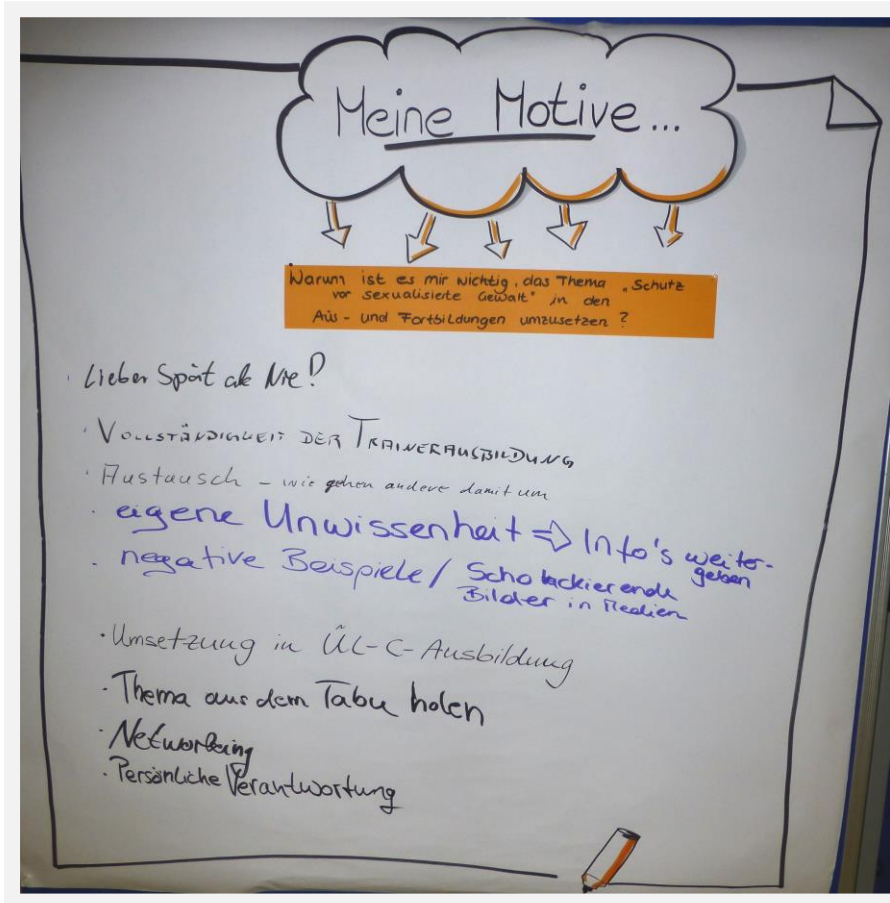 Meine Motive...
Warum ist es mir wichtig, das Thema „Schutz
vor sexualisierte Gewalt" in den
Aus- und Fortbildungen umzusetzen?
· Lieber Spät als Nie!
· VOLLSTÄNDIGKEIT DER TRAINERAUSBILDUNG
· Austausch – wie gehen andere damit um
· eigene Unwissenheit ⇒ Info's weiter-
geben
· negative Beispiele / Schockierende
Bilder in Medien
· Umsetzung in ÜL-C-Ausbildung
· Thema aus dem Tabu holen
· Networking
· Persönliche Verantwortung